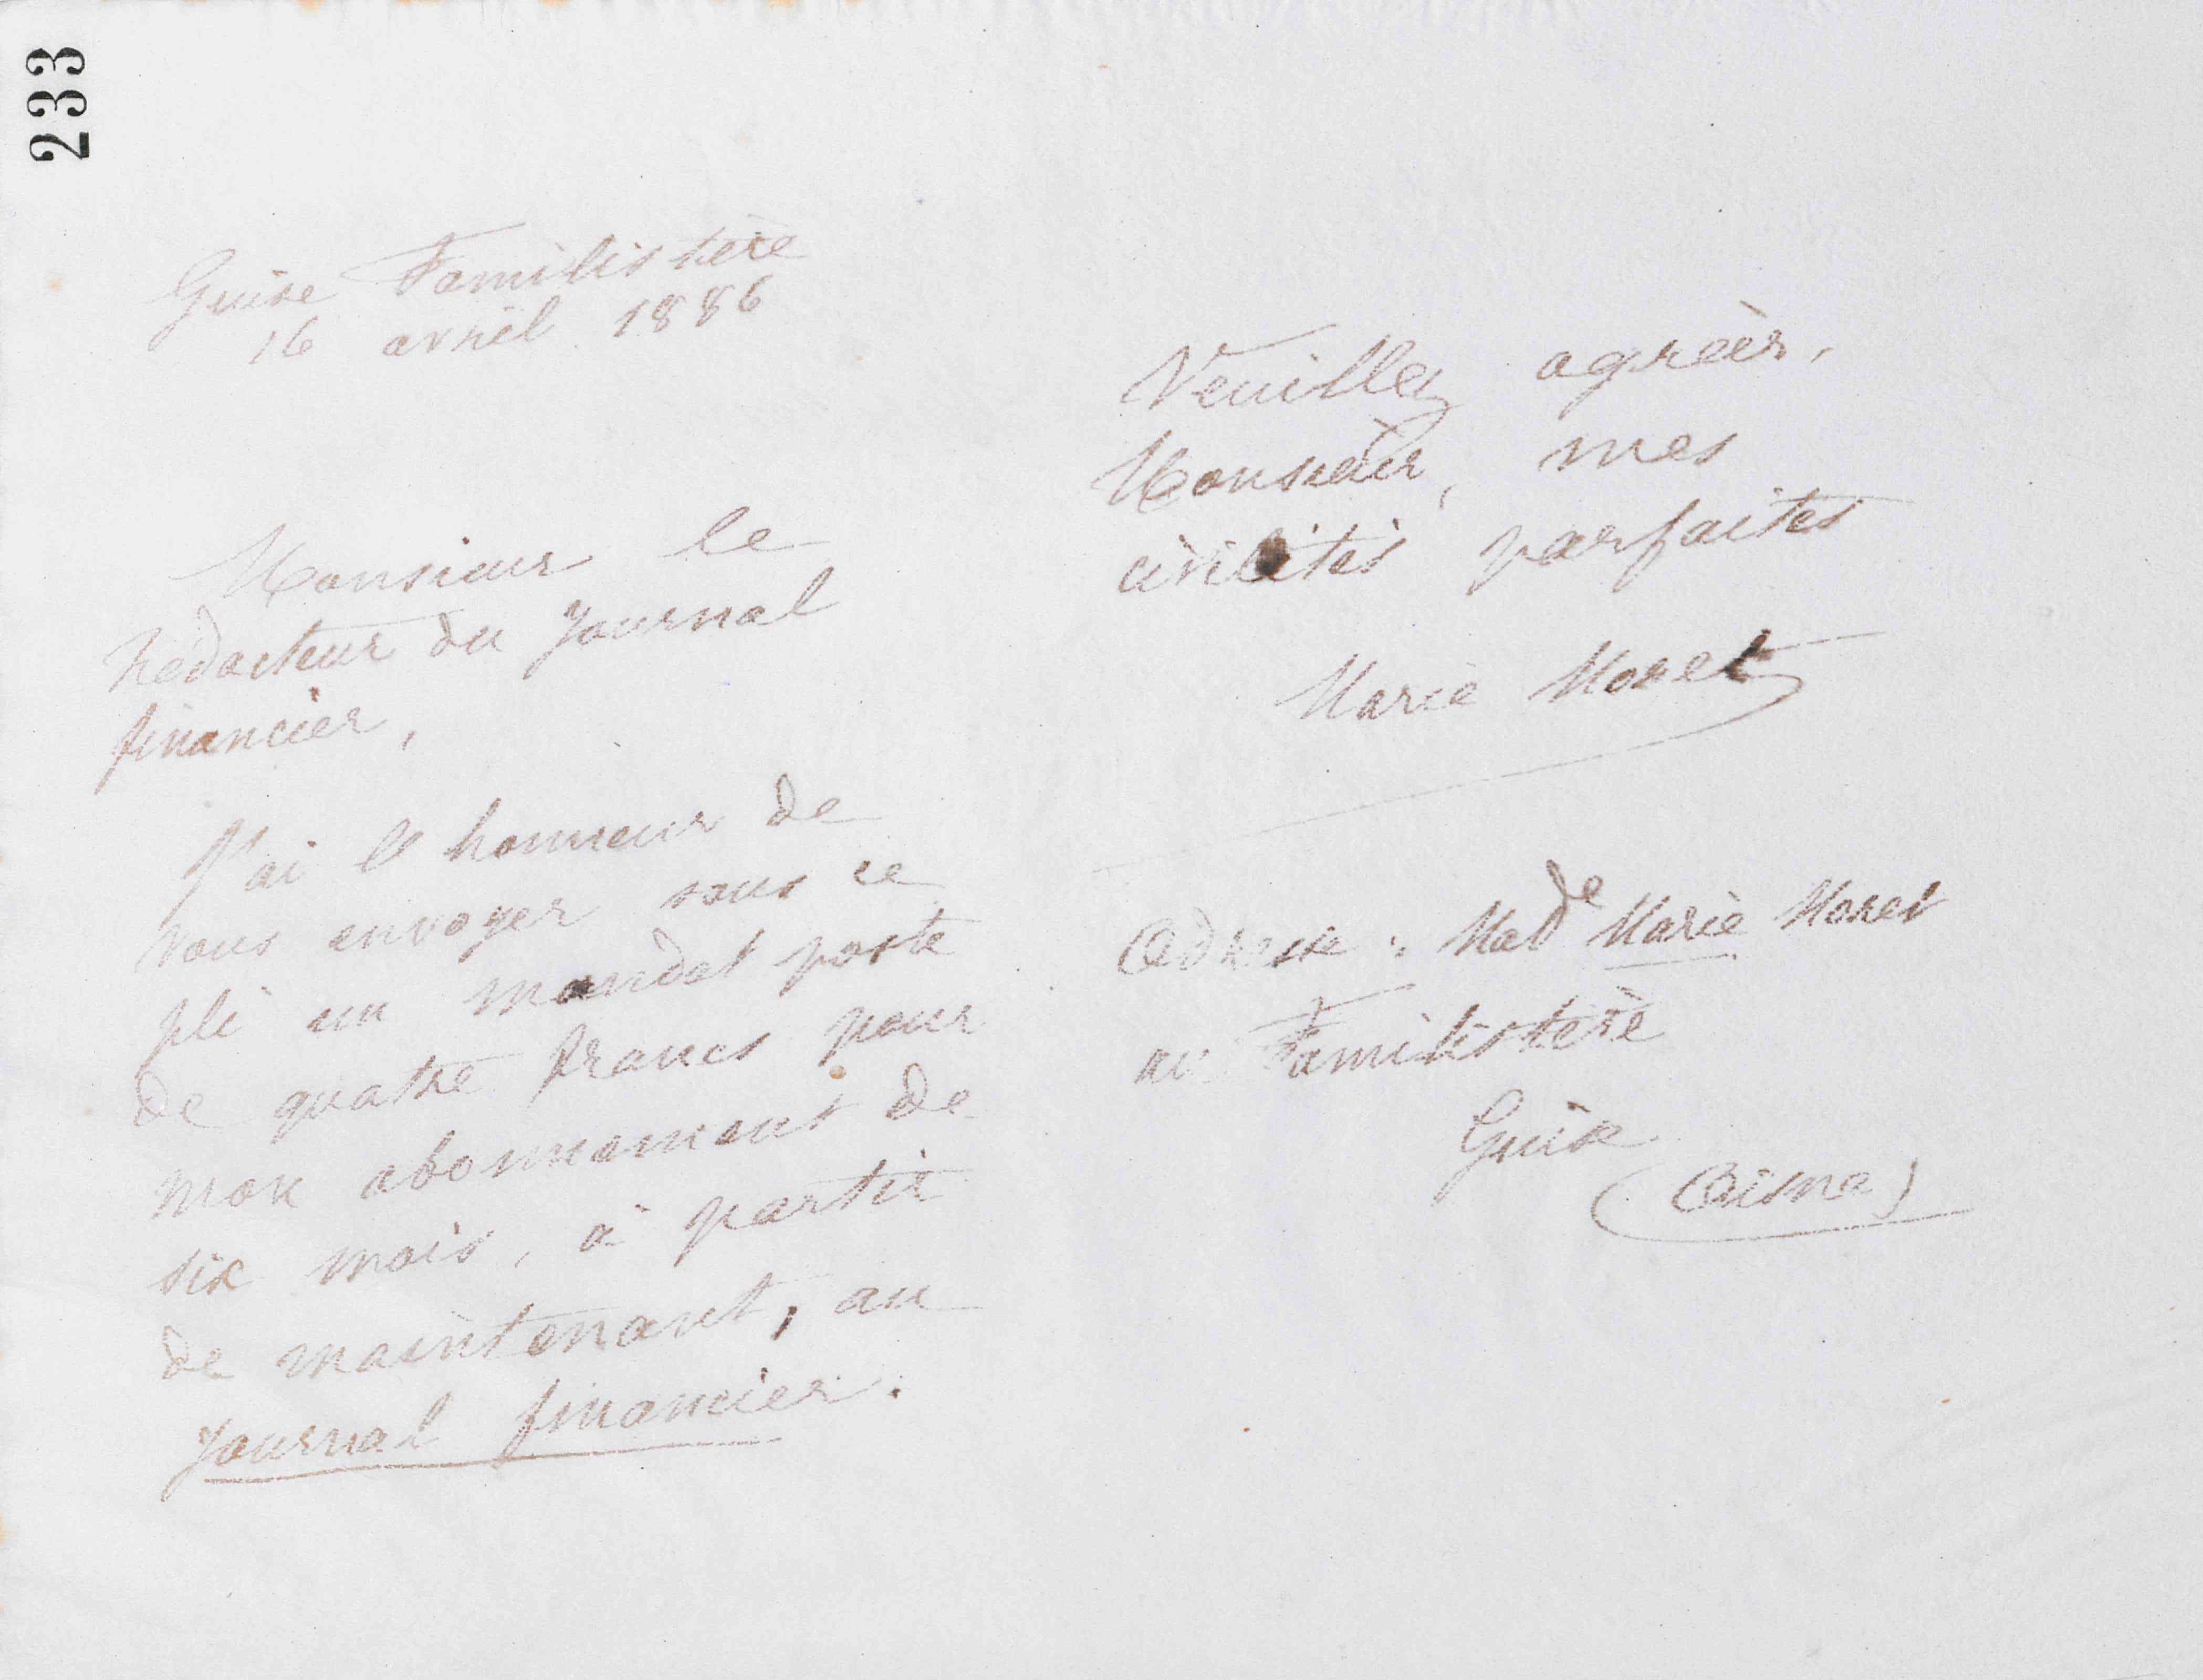 233
Guise Familistère
16 avril 1886
Monsieur le
rédacteur du Journal
financier,
J'ai l'honneur de
vous envoyer sous ce
pli un mandat poste
de quatre francs pour
mon abonnement de
six mois, à partir
de maintenant, au
Journal financier.
Veuillez agréer,
Monsieur, mes
civilités parfaites
Marie Moret
Adresse : Madde Marie Moret
au Familistère
Guise
(Aisne)